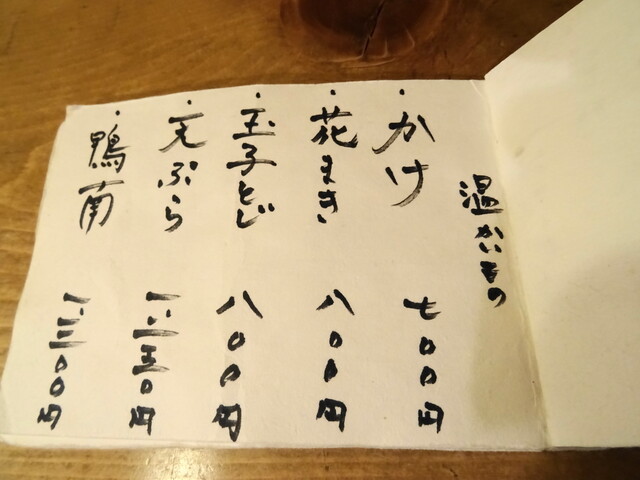 温かいもの
・かけ 七〇〇円
・花まき 八〇〇円
・玉子とじ 八〇〇円
・天ぷら 一、二五〇円
・鴨南 一、三〇〇円